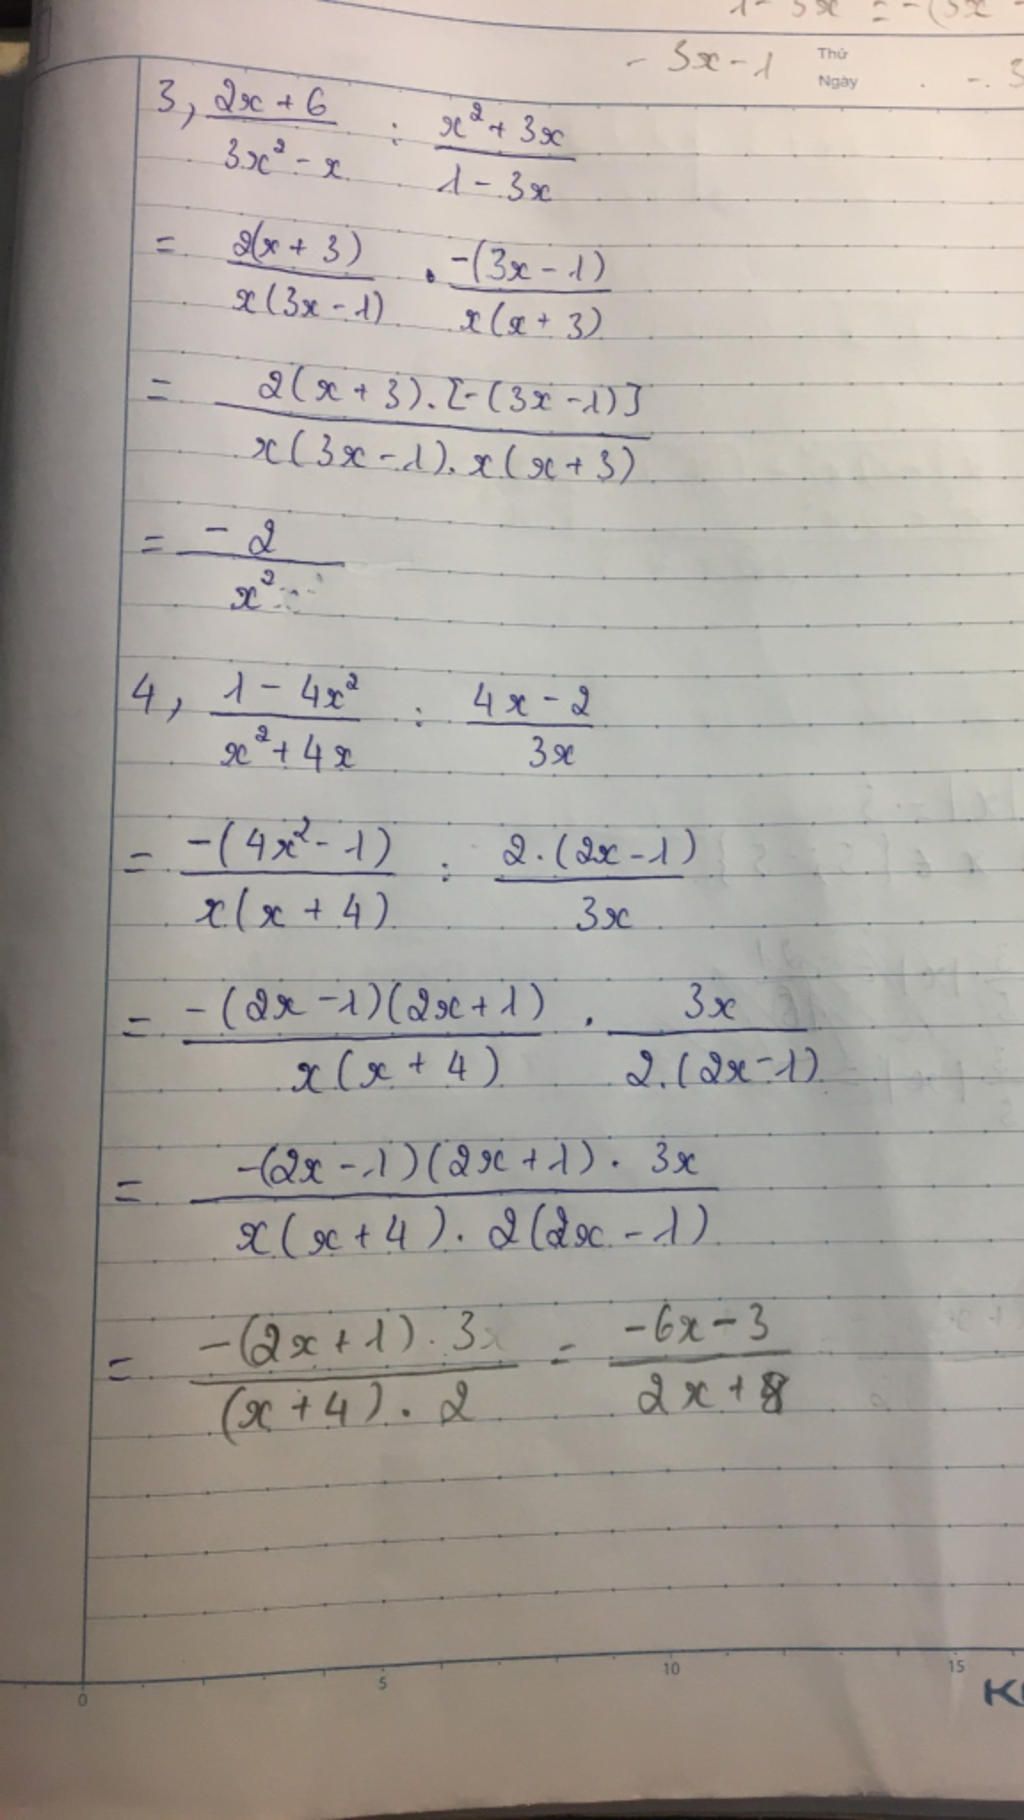 - 3x - 1 Thứ
Ngày
3, (2x + 6)/(3x² - x) : (x² + 3x)/(1 - 3x)
= 2(x + 3)/x(3x - 1) . -(3x - 1)/x(x + 3)
= 2(x + 3).[-(3x - 1)]/x(3x - 1).x(x + 3)
= -2/x²
4, (1 - 4x²)/(x² + 4x) : (4x - 2)/3x
= -(4x² - 1)/x(x + 4) : 2.(2x - 1)/3x
= -(2x - 1)(2x + 1)/x(x + 4) . 3x/2.(2x - 1)
= -(2x - 1)(2x + 1) . 3x/x(x + 4) . 2(2x - 1)
= -(2x + 1) . 3/(x + 4) . 2 = (-6x - 3)/(2x + 8)
0 5 10 15